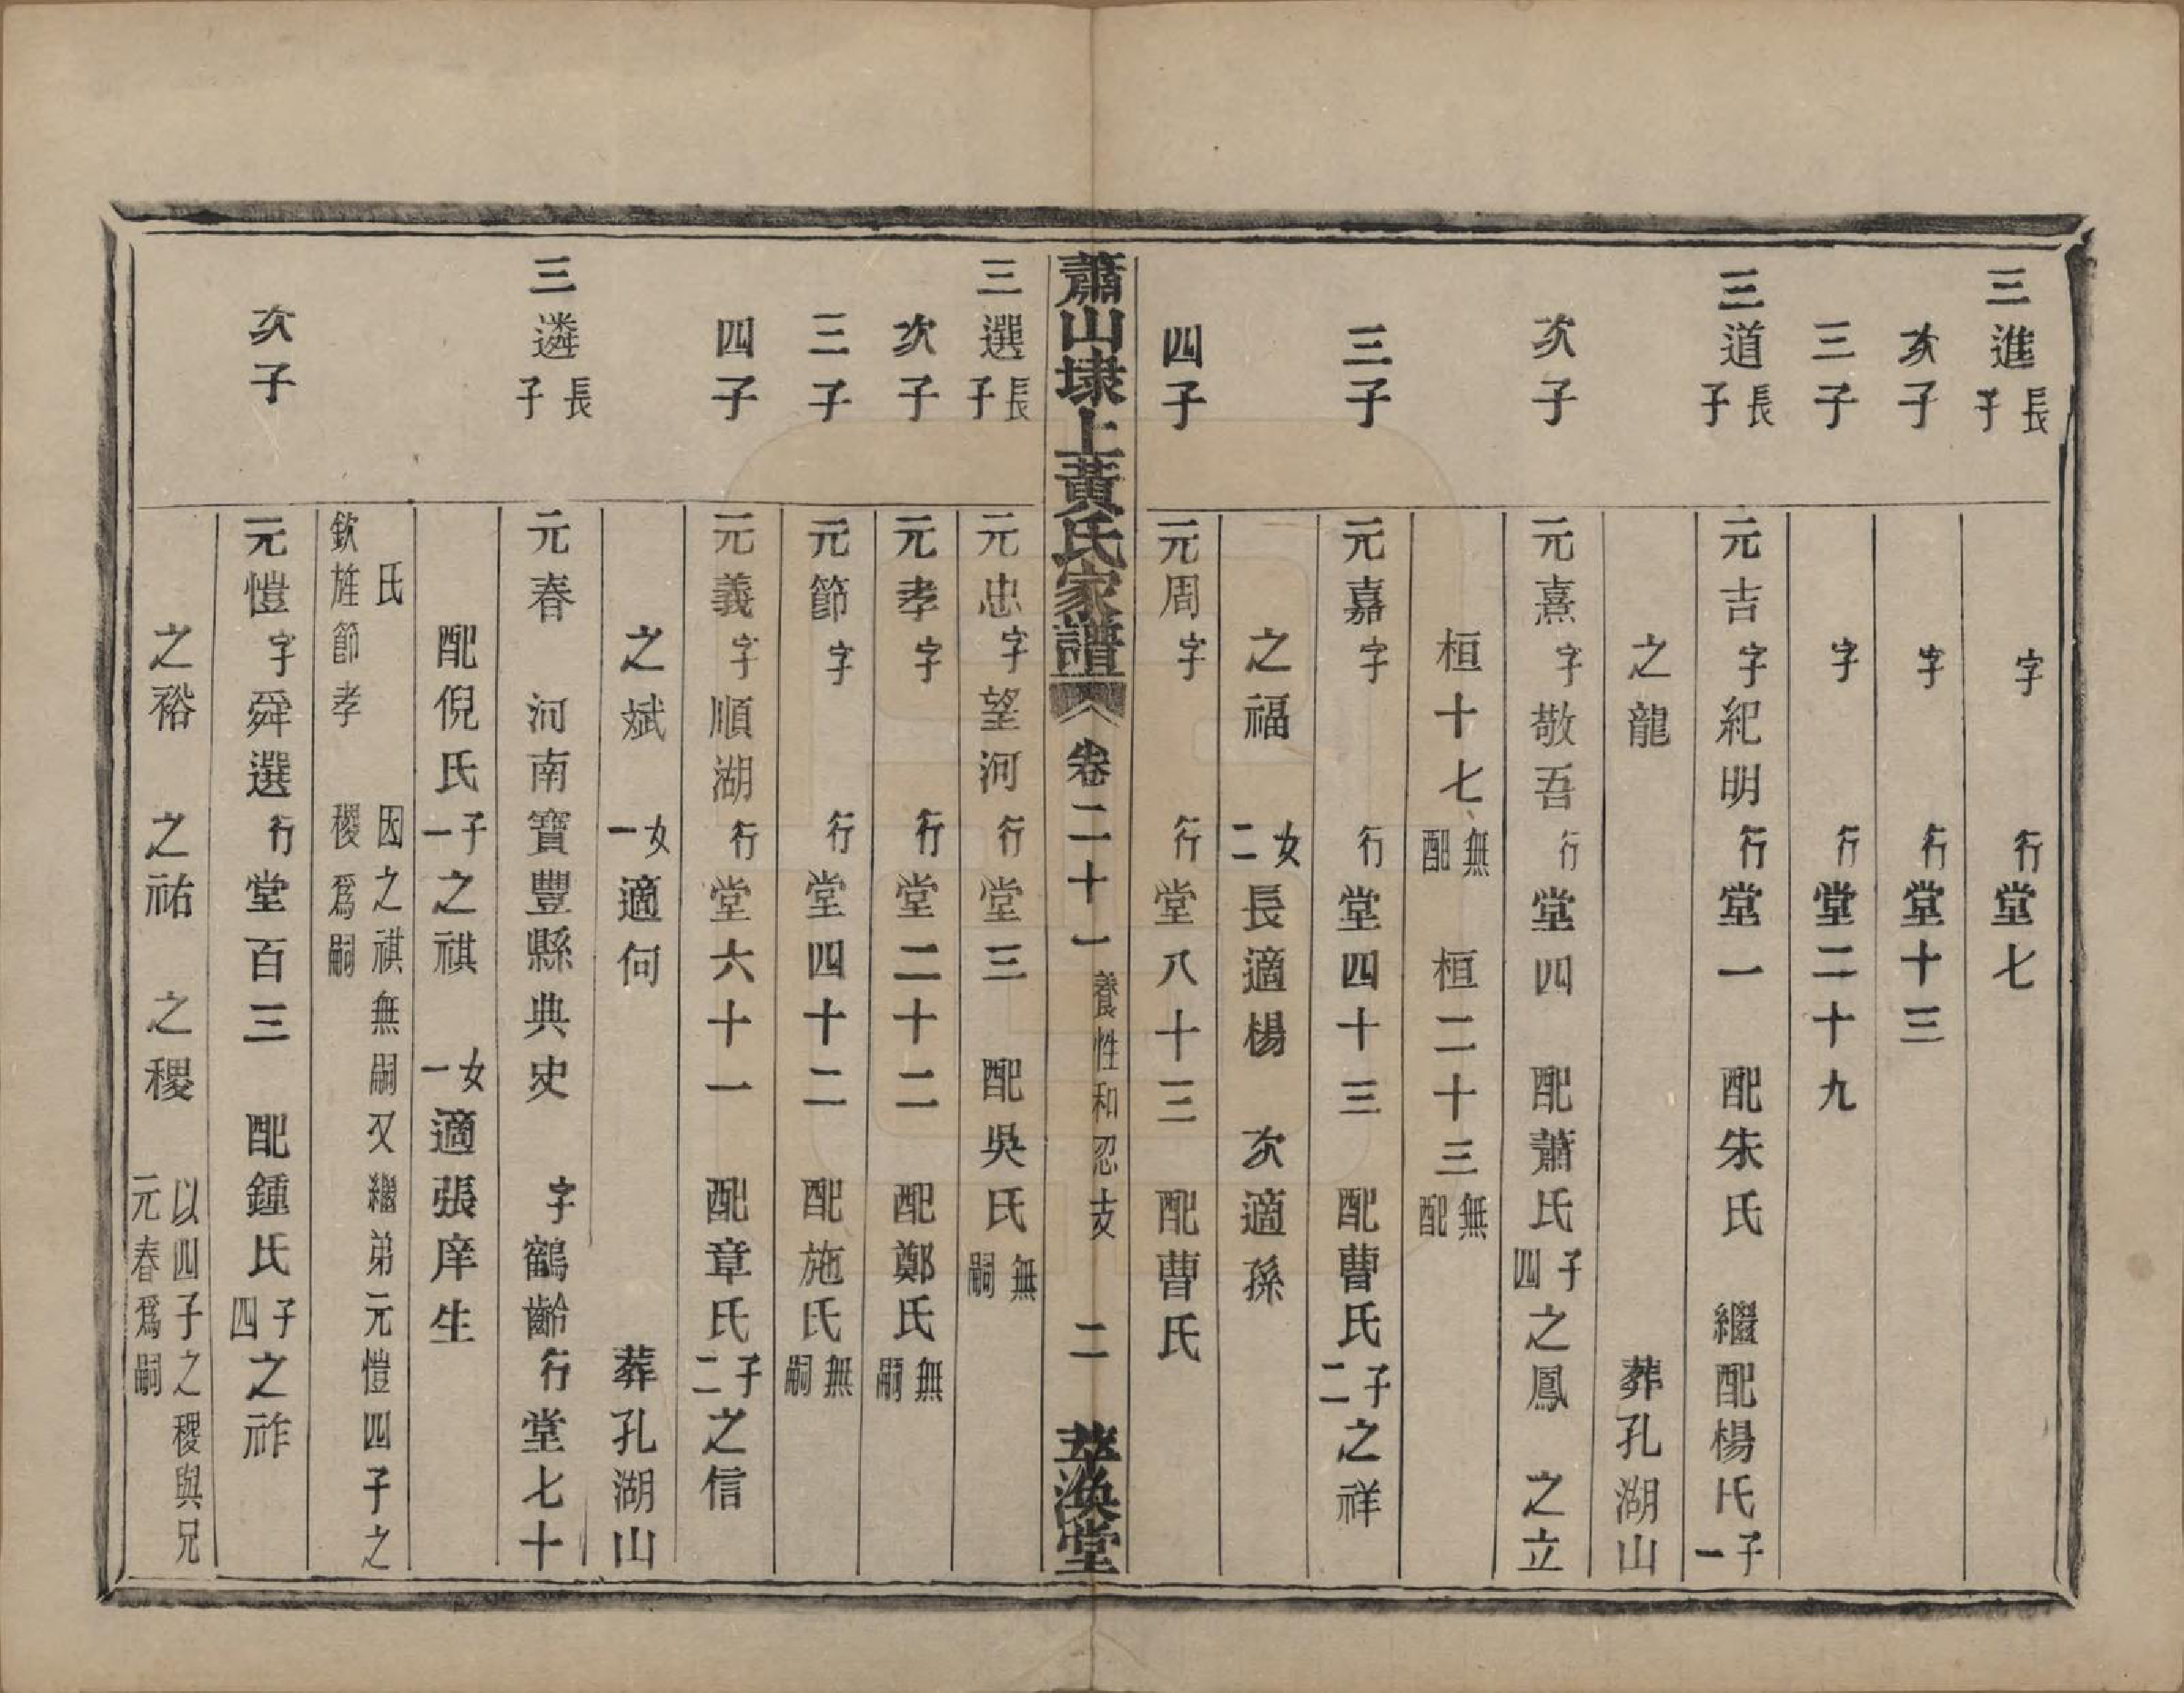 三進長子　字　行堂七
次子　字　行堂十三
三子　字　行堂二十九
三道長子　元吉字紀明行堂一　配朱氏　繼配楊氏子一
之龍　葬孔湖山
次子　元熹字敬吾行堂四　配蕭氏子四之鳳　之立
桓十七無配　桓二十三無配
三子　元嘉字　行堂四十三　配曹氏子二之祥
之福　女二長適楊　次適孫
四子　元周字　行堂八十三　配曹氏
蕭山埭上黃氏家譜　卷二十一　養性和忍支　二　萃渙堂
三選長子　元忠字望河行堂三　配吳氏無嗣
次子　元孝字　行堂二十二　配鄭氏無嗣
三子　元節字　行堂四十二　配施氏無嗣
四子　元義字順湖行堂六十一　配章氏子二之信
之斌　女一適何　葬孔湖山
三遴長子　元春　河南寶豐縣典史　字鶴齡行堂七十
配倪氏子一之祺　女一適張庠生
氏　因之祺無嗣又繼弟元愷四子之
欽旌節孝　稷爲嗣
次子　元愷字舜選行堂百三　配鍾氏子四之祚
之裕　之祐　之稷　以四子之稷與兄元春爲嗣